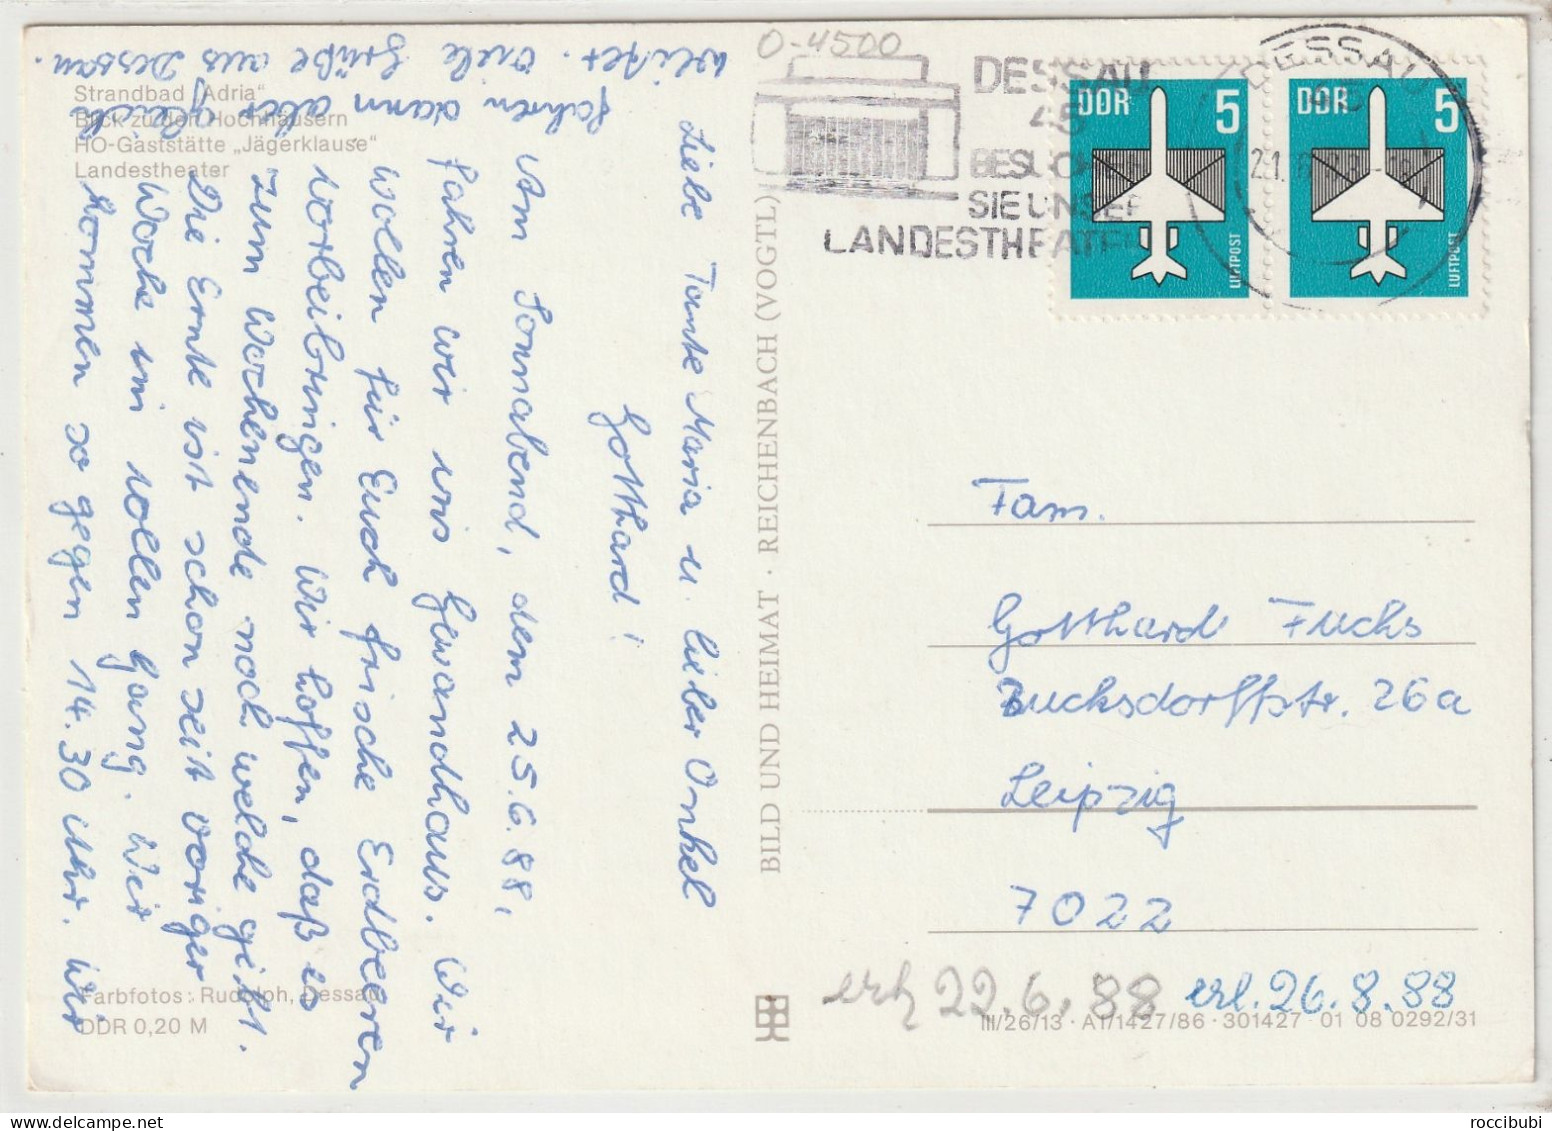 Strandbad „Adria“
Blick zu den Hochhäusern
HO-Gaststätte „Jägerklause“
Landestheater
Liebe Tante Maria u. lieber Onkel
Gotthard!
Am Sonnabend, dem 25.6.88,
fahren wir ins Gewandhaus. Wir
wollen für Euch frische Erdbeeren
vorbeibringen. Wir hoffen, daß es
zum Wochenende noch welche gibt.
Die Ernte ist schon seit voriger
Woche im vollen Gang. Wir
kommen so gegen 14.30 Uhr. Wir
fahren dann aber gleich
weiter. Viele Grüße aus Dessau.
Farbfotos: Rudolph, Dessau
DDR 0,20 M
BILD UND HEIMAT · REICHENBACH (VOGTL)
O-4500
DESSAU
45
BESUCHEN
SIE UNSER
LANDESTHEATER
DESSAU
45
21.6.88
DDR 5
LUFTPOST
DDR 5
LUFTPOST
Fam.
Gotthard Fuchs
Bucksdorffstr. 26a
Leipzig
7022
erh 22.6.88 erl. 26.8.88
III/26/13 · A1/1427/86 · 301427 01 08 0292/31
roccibubi